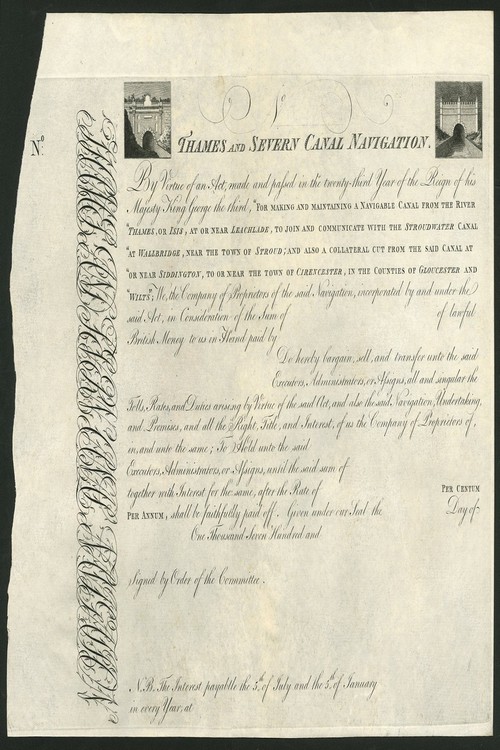 No.
THAMES AND SEVERN CANAL NAVIGATION.
By Virtue of an Act, made and passed in the twenty-third Year of the Reign of his
Majesty King George the third, "FOR MAKING AND MAINTAINING A NAVIGABLE CANAL FROM THE RIVER
"THAMES, OR ISIS, AT OR NEAR LEICHLADE, TO JOIN AND COMMUNICATE WITH THE STROUDWATER CANAL
"AT WALBRIDGE, NEAR THE TOWN OF STROUD; AND ALSO A COLLATERAL CUT FROM THE SAID CANAL AT
"OR NEAR SIDDINGTON, TO OR NEAR THE TOWN OF CIRENCESTER, IN THE COUNTIES OF GLOUCESTER AND
"WILTS"; We, the Company of Proprietors of the said Navigation, incorporated by and under the
said Act, in Consideration of the Sum of of lawful
British Money to us in Hand paid by
Do hereby bargain, sell, and transfer unto the said
Executors, Administrators, or Assigns, all and singular the
Tolls, Rates, and Duties arising by Virtue of the said Act, and also the said Navigation, Undertaking,
and Premises, and all the Right, Title, and Interest, of us the Company of Proprietors of,
in, and unto the same; To Hold unto the said
Executors, Administrators, or Assigns, until the said sum of
together with Interest for the same, after the Rate of PER CENTUM
PER ANNUM, shall be faithfully paid off. Given under our Seal the Day of
One Thousand Seven Hundred and
Signed by Order of the Committee.
N.B. The Interest payable the 5th. of July and the 5th. of January
in every Year, at